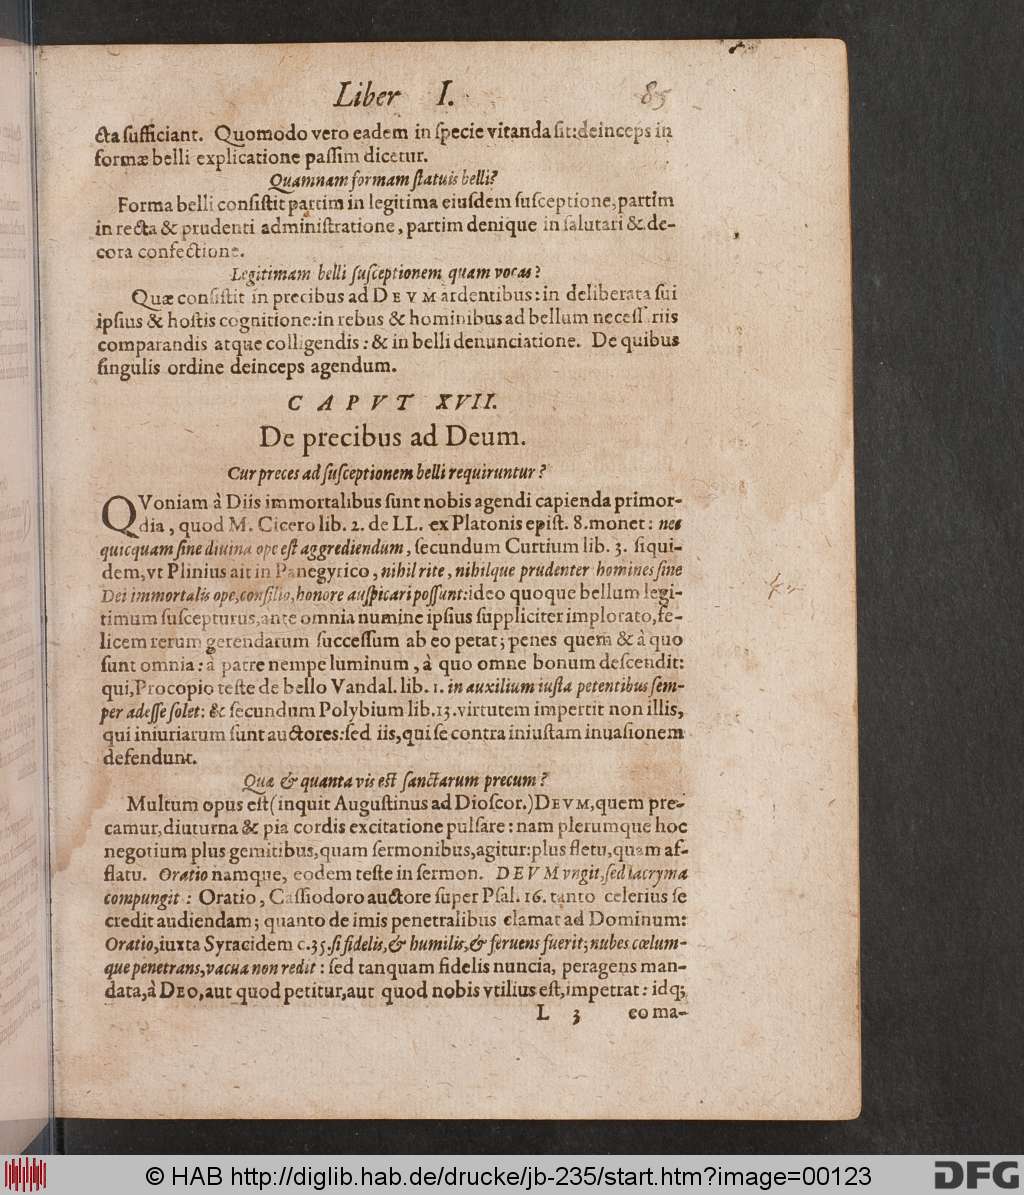 Liber I. 85
cta ſufficiant. Quomodo vero eadem in ſpecie vitanda ſit: deinceps in
formæ belli explicatione paſſim dicetur.
Quamnam formam ſtatuis belli?
Forma belli conſiſtit partim in legitima eiuſdem ſuſceptione, partim
in recta & prudenti adminiſtratione, partim denique in ſalutari & de-
cora confectione.
Legitimam belli ſuſceptionem quam vocas?
Quæ conſiſtit in precibus ad DEVM ardentibus: in deliberata ſui
ipſius & hoſtis cognitione: in rebus & hominibus ad bellum neceſſariis
comparandis atque colligendis: & in belli denunciatione. De quibus
ſingulis ordine deinceps agendum.
CAPVT XVII.
De precibus ad Deum.
Cur preces ad ſuſceptionem belli requiruntur?
QVoniam à Diis immortalibus ſunt nobis agendi capienda primor-
dia, quod M. Cicero lib. 2. de LL. ex Platonis epiſt. 8. monet: nec
quicquam ſine diuina ope eſt aggrediendum, ſecundum Curtium lib. 3. ſiqui-
dem, vt Plinius ait in Panegyrico, nihil rite, nihilque prudenter homines ſine
Dei immortalis ope, conſilio, honore auſpicari poſſunt: ideo quoque bellum legi-
timum ſuſcepturus, ante omnia numine ipſius ſuppliciter implorato, fe-
licem rerum gerendarum ſucceſſum ab eo petat; penes quem & à quo
ſunt omnia: à patre nempe luminum, à quo omne bonum deſcendit:
qui, Procopio teſte de bello Vandal. lib. 1. in auxilium iuſta petentibus ſem-
per adeſſe ſolet: & ſecundum Polybium lib. 13. virtutem impertit non illis,
qui iniuriarum ſunt auctores: ſed iis, qui ſe contra iniuſtam inuaſionem
defendunt.
Quæ & quanta vis eſt ſanctarum precum?
Multum opus eſt (inquit Auguſtinus ad Dioſcor.) DEVM, quem pre-
camur, diuturna & pia cordis excitatione pulſare: nam plerumque hoc
negotium plus gemitibus, quam ſermonibus, agitur: plus fletu, quam af-
flatu. Oratio namque, eodem teſte in ſermon. DEVM vngit, ſed lacryma
compungit: Oratio, Caſſiodoro auctore ſuper Pſal. 16. tanto celerius ſe
credit audiendam; quanto de imis penetralibus clamat ad Dominum:
Oratio, iuxta Syracidem c. 35. ſi fidelis, & humilis, & feruens fuerit; nubes cœlum-
que penetrans, vacua non redit: ſed tanquam fidelis nuncia, peragens man-
data, à DEO, aut quod petitur, aut quod nobis vtilius eſt, impetrat: idq;
L 3 eo ma-
© HAB http://diglib.hab.de/drucke/jb-235/start.htm?image=00123
DFG